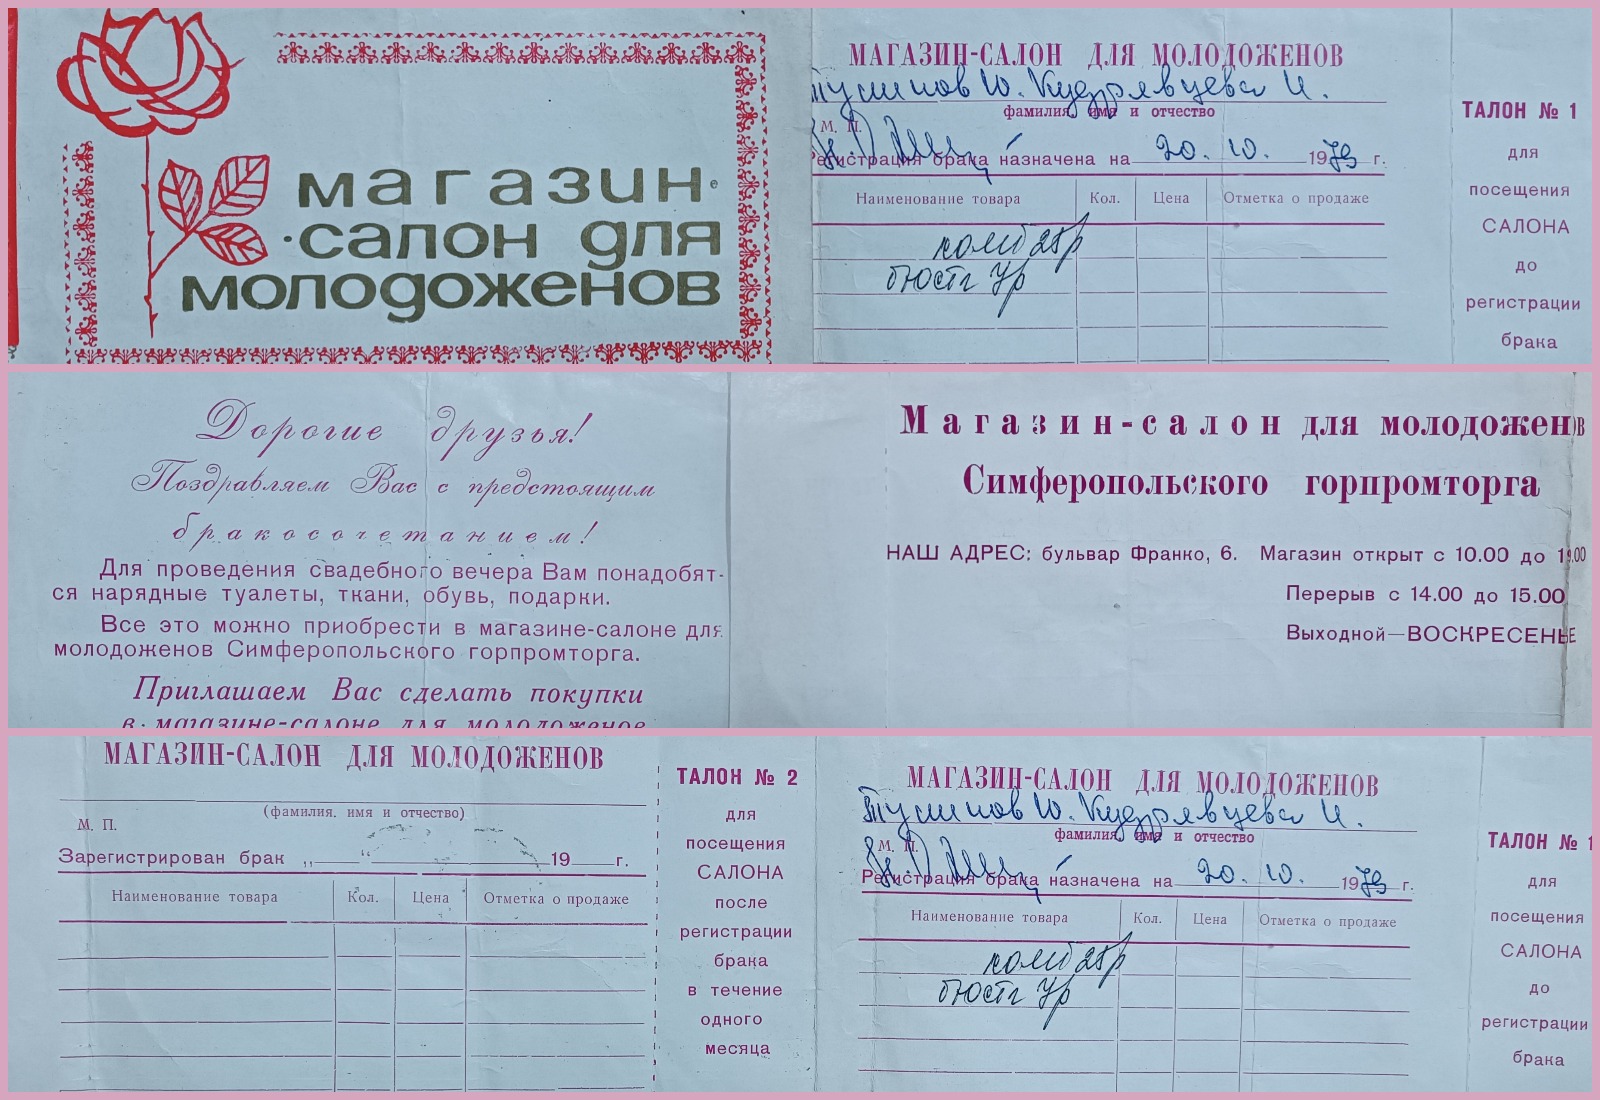 магазин-
-салон для
молодоженов
МАГАЗИН-САЛОН ДЛЯ МОЛОДОЖЕНОВ
Ю. Кудрявцева И.
фамилия, имя и отчество
М. П.
Регистрация брака назначена на 20. 10. 1979 г.
Наименование товара Кол. Цена Отметка о продаже
комб 25р
бюстг
ТАЛОН № 1
для
посещения
САЛОНА
до
регистрации
брака
Дорогие друзья!
Поздравляем Вас с предстоящим
бракосочетанием!
Для проведения свадебного вечера Вам понадобят-
ся нарядные туалеты, ткани, обувь, подарки.
Все это можно приобрести в магазине-салоне для
молодоженов Симферопольского горпромторга.
Приглашаем Вас сделать покупки
в магазине-салоне для молодоженов
Магазин-салон для молодоженов
Симферопольского горпромторга
НАШ АДРЕС: бульвар Франко, 6. Магазин открыт с 10.00 до
Перерыв с 14.00 до 15.00
Выходной—ВОСКРЕСЕНЬЕ
МАГАЗИН-САЛОН ДЛЯ МОЛОДОЖЕНОВ
(фамилия, имя и отчество)
М. П.
Зарегистрирован брак „ “ 19 г.
Наименование товара Кол. Цена Отметка о продаже
ТАЛОН № 2
для
посещения
САЛОНА
после
регистрации
брака
в течение
одного
месяца
МАГАЗИН-САЛОН ДЛЯ МОЛОДОЖЕНОВ
Ю. Кудрявцева И.
фамилия, имя и отчество
М. П.
Регистрация брака назначена на 20. 10. 1979 г.
Наименование товара Кол. Цена Отметка о продаже
комб 25р
бюстг
ТАЛОН № 1
для
посещения
САЛОНА
до
регистрации
брака